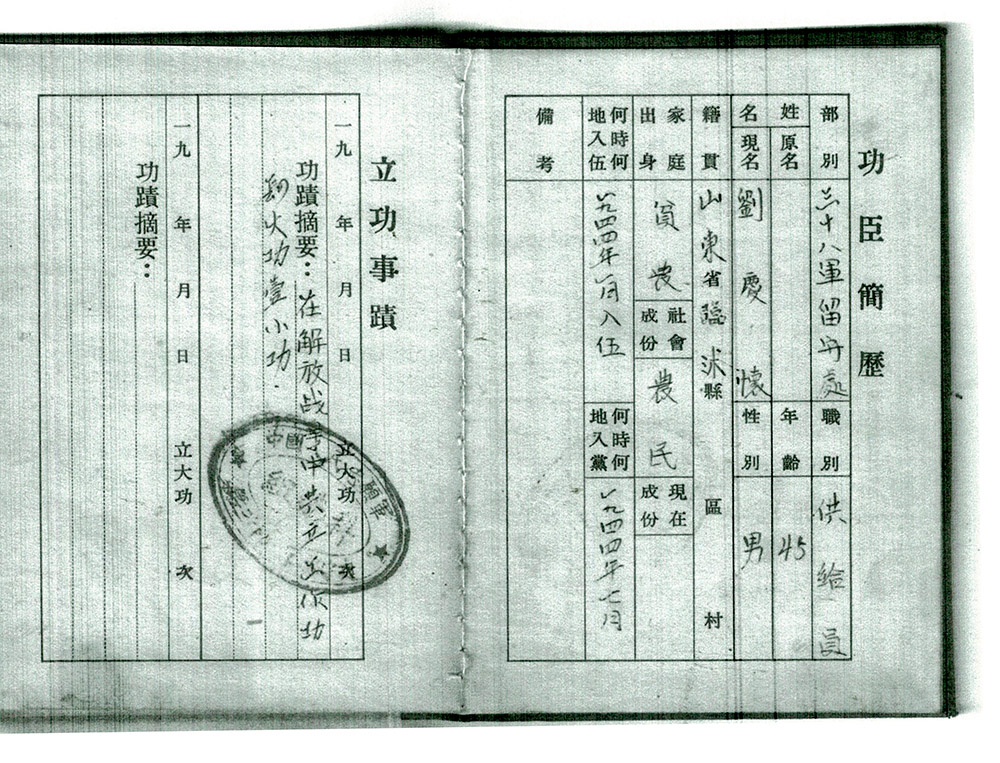 功臣簡歷
部別 三十八軍留守處 職別 供給員
姓名 原名 年齡 45
現名 劉慶懷 性別 男
籍貫 山東省臨沭縣 區 村
家庭出身 貧農 社會成份 農民 現在成份
何時何地入伍 一九四四年一月入伍 何時何地入黨 一九四四年七月
備考
立功事蹟
一九 年 月 日 立大功 次
功蹟摘要：在解放战爭中共立 功
火功壹小功.
一九 年 月 日 立大功 次
功蹟摘要：
中國 願軍